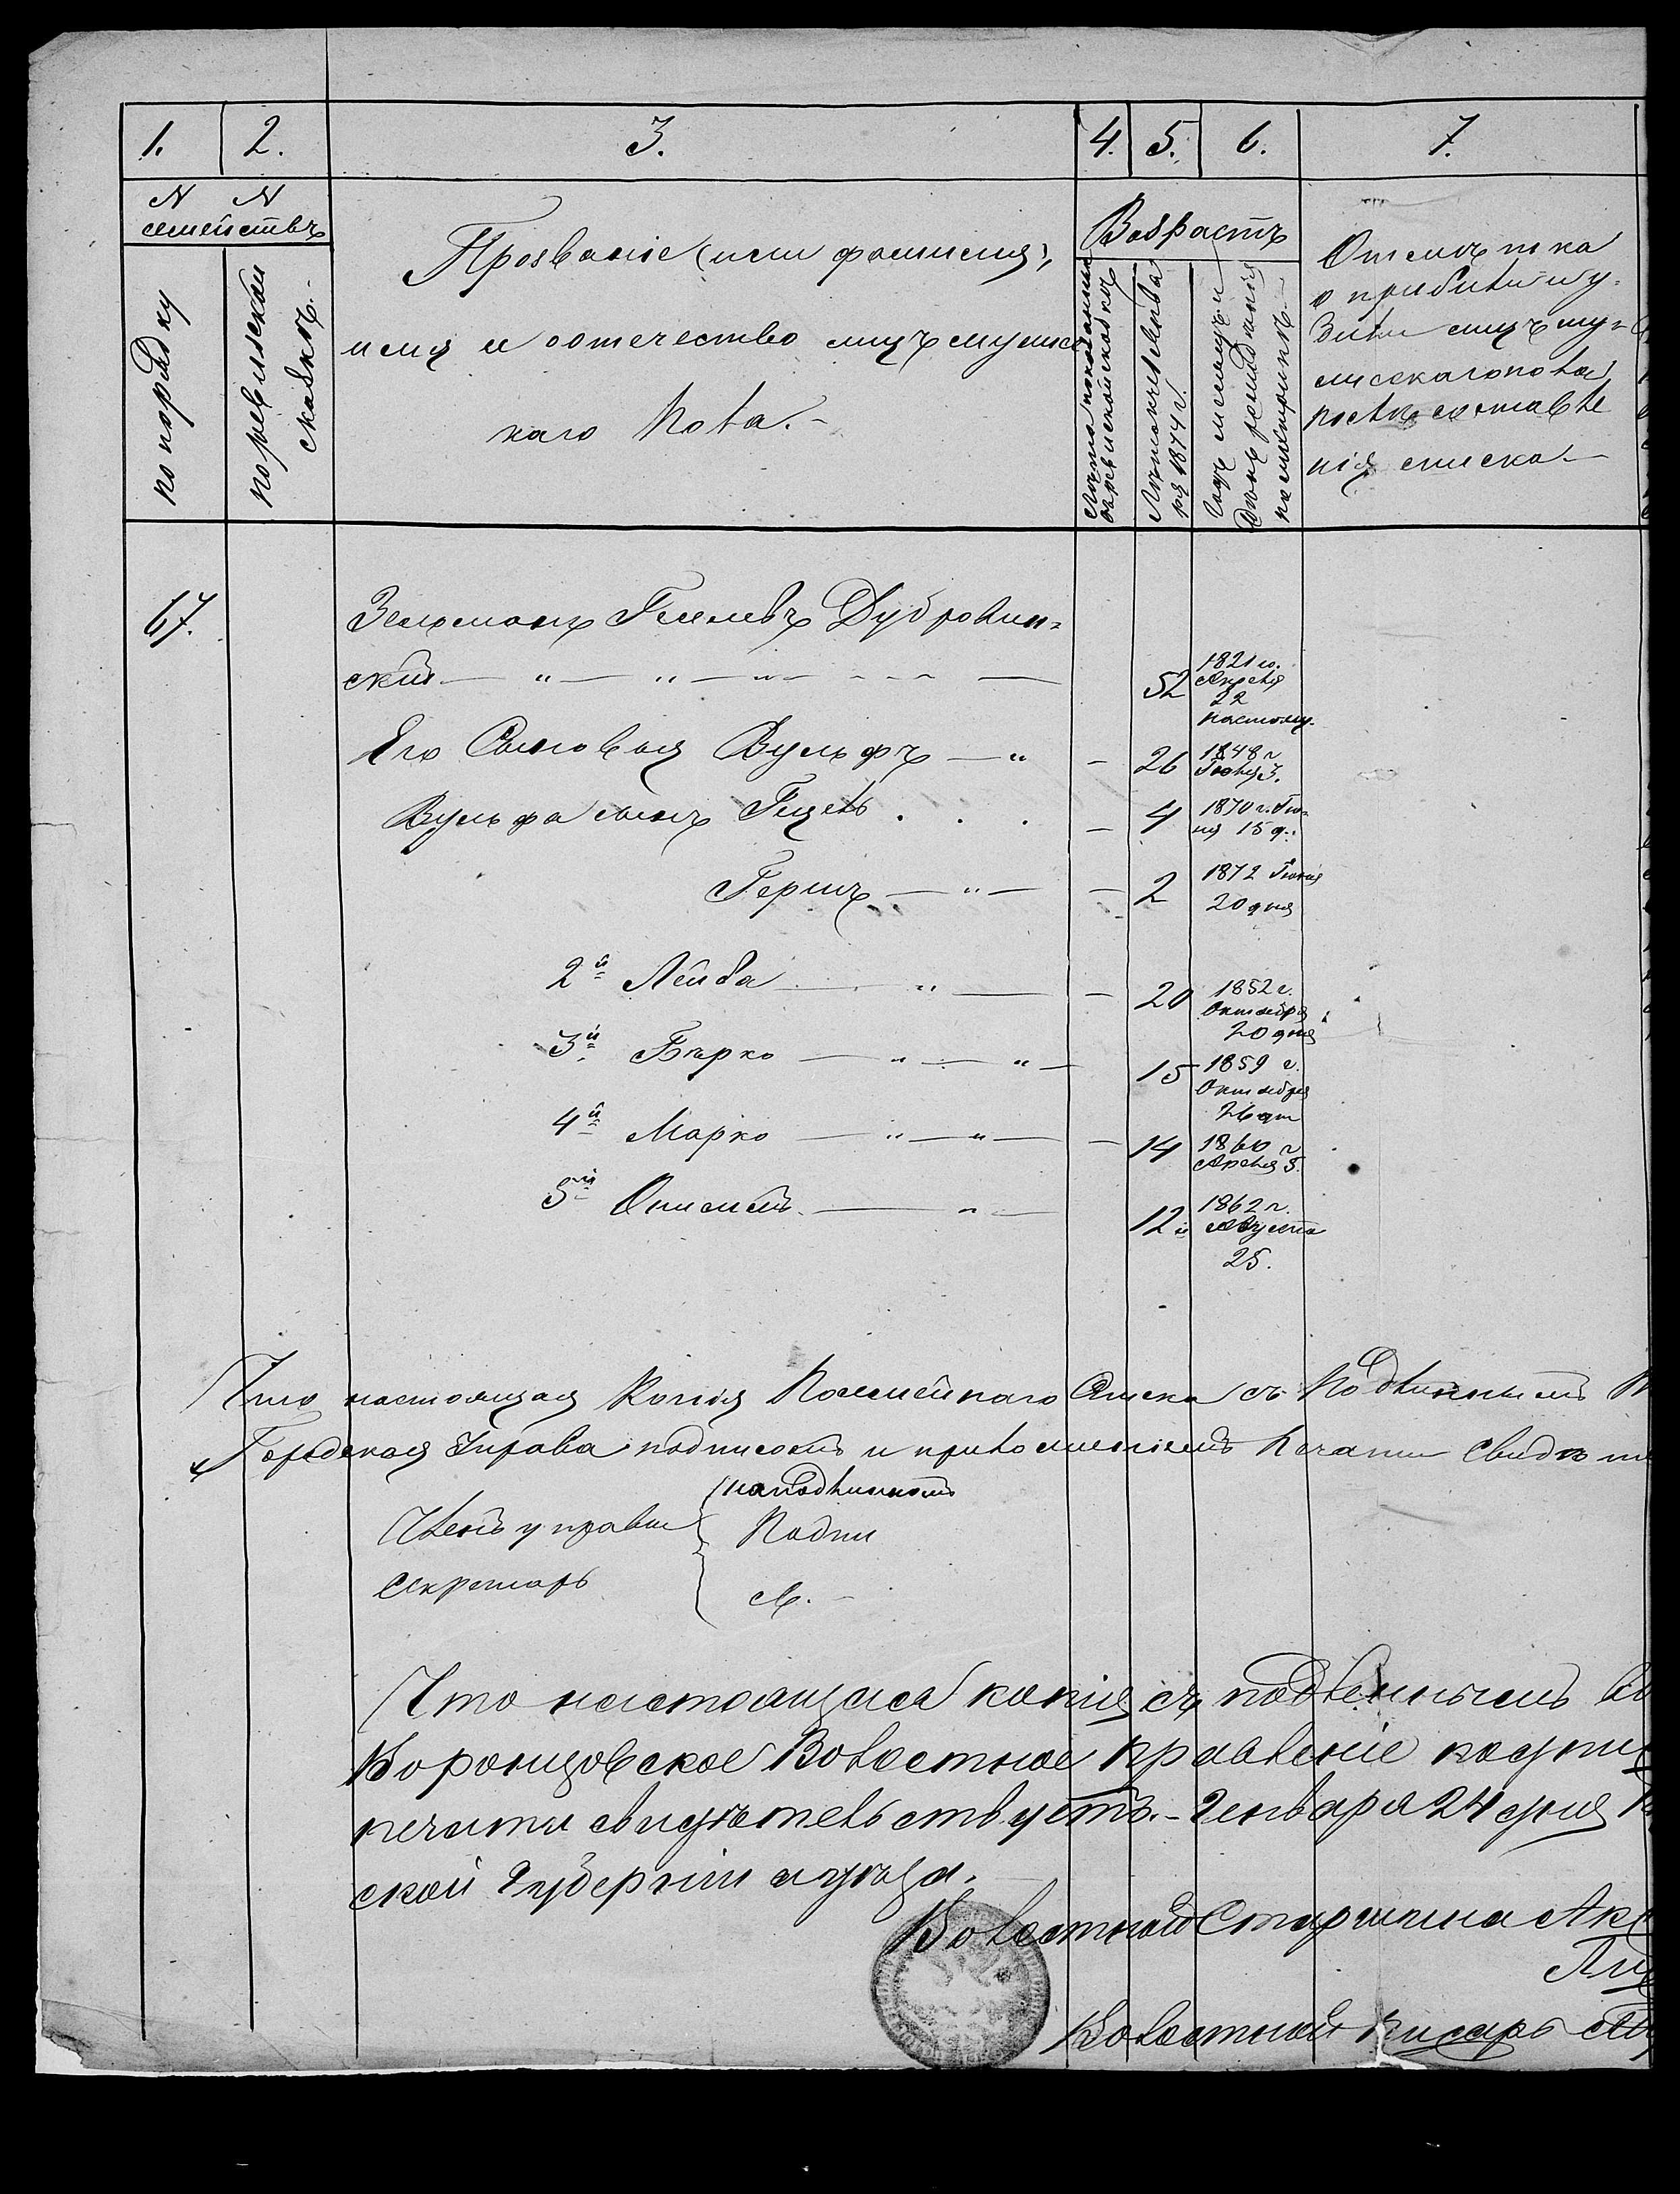 1. 2. 3. 4. 5. 6. 7.
N N
семействъ
по порядку
по ревизской
сказкѣ.
Прозваніе (или фамилія),
имя и отечество лицъ мужес
каго пола.
Возрастъ
Лѣта показанныя
въ ревизской сказкѣ
Лѣта къ 1 Янва
ря 1874 г.
Годъ мѣсяцъ и
день рожденія
по метрикѣ.
Отмѣтка
о прибыли и у-
были лицъ му-
жескаго пола,
послѣ составле
нія списка.
67.
Зельманъ Гилевъ Дубровин-
скій 52 1821 го.
Апрѣля
22
Его Сыновья Вульфъ 26 1848 г
Іюля 3.
Вульфа сынъ Гилель 4 1870 г. Ію-
ня 15 д.
Гершъ 2 1872 Іюня
20 дня
2й Лейба 20 1852 г.
Октября
20 дня
3й Бѣрко 15 1859 г.
Октября
26 дня
4й Марко 14 1860 г
Апрѣля 5.
5й 12 1862 г.
Августа
25.
Что настоящая Копія Посемейнаго Списка съ Подлиннымъ
Городская Управа подписомъ и приложеніемъ Печати Свидѣте
на подлинномъ
Членъ управы Подпи
Секретарь
Что настоящая копія съ подленнымъ
Воронцовское Волостное правленіе
печати свидѣтельствуетъ. Генваря 24 дня
ской Губерніи и уѣзда.
Волостной Старшина
Волостной писарь